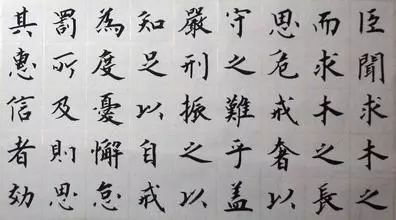 臣聞求木之
而求木之長
思危戒奢以
守之難乎蓋
嚴刑振之以
知足以自戒
為度憂懈怠
罰所及則思
其惠信者効